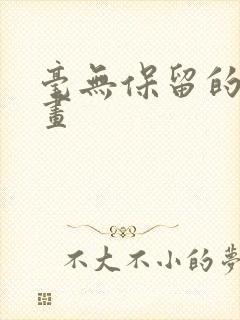 毫無保留的
畫
不大不小的夢